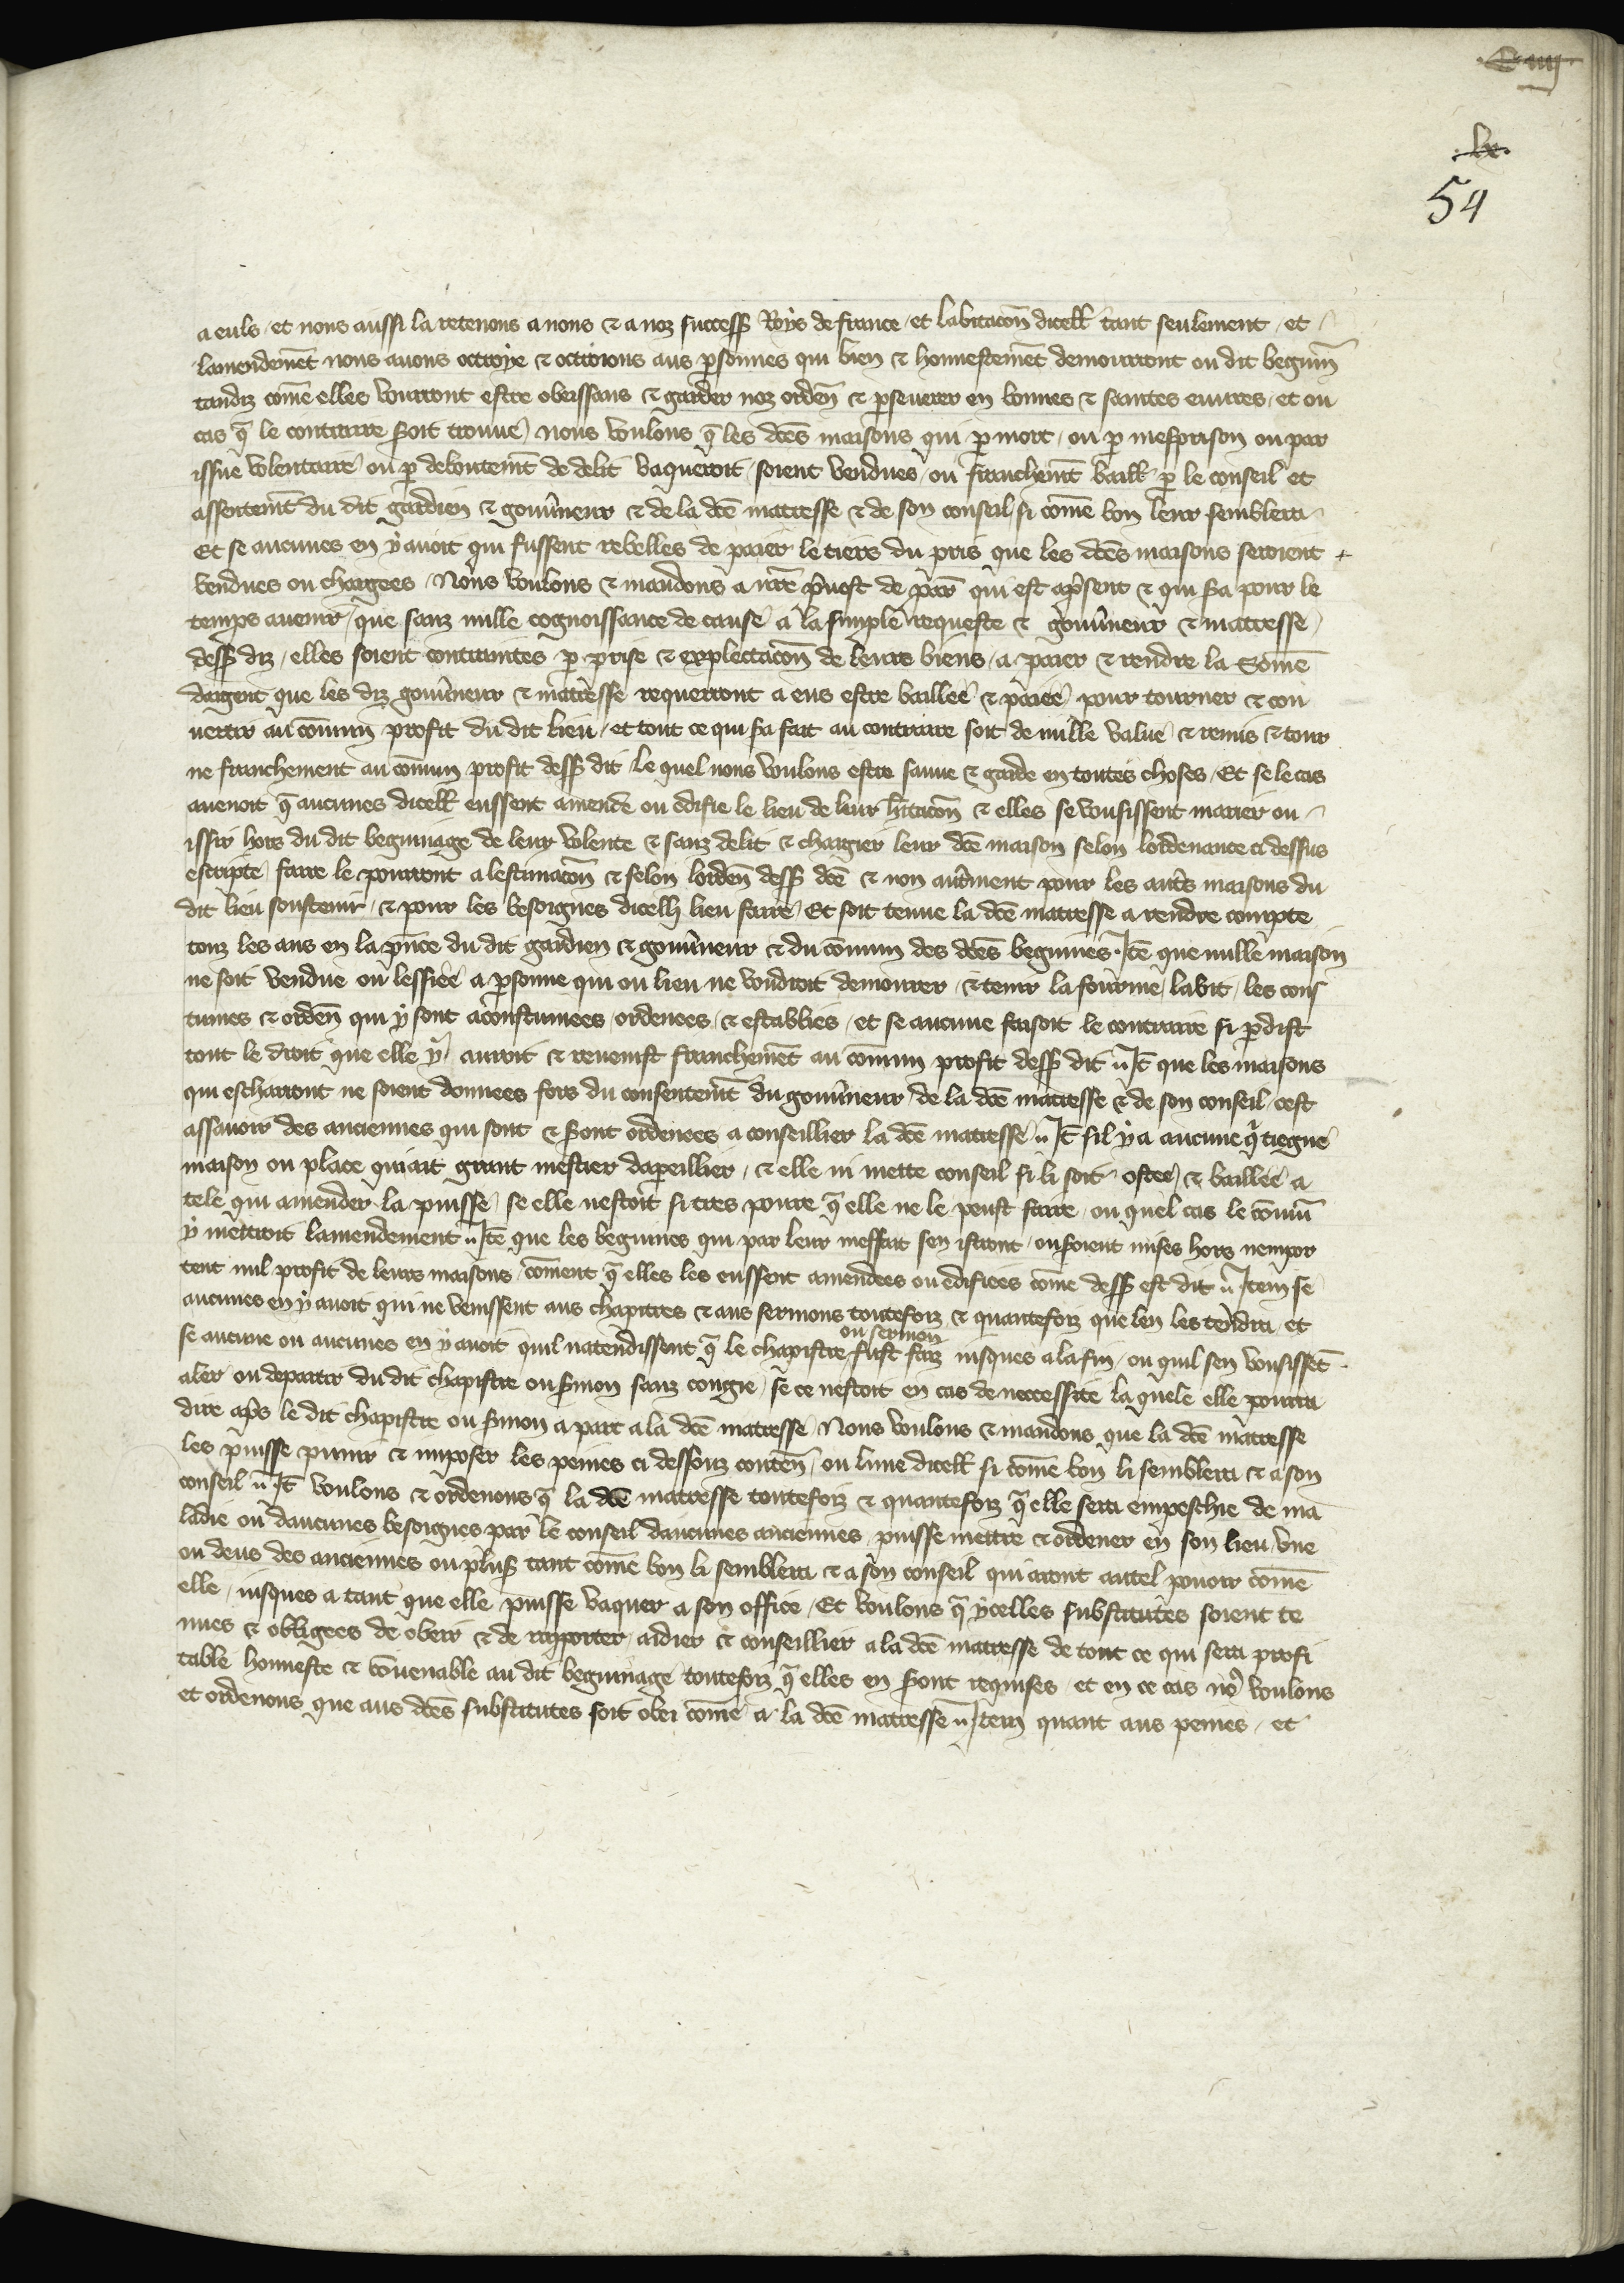 lx
54
a euls / et nous aussi la retenons a nous & a noz success̃ Roys de france / et labitacõn dicell̃ tant seulement / et
lamendemẽt nous auons ottroye & ottroions aus p̱sonnes qui bien & honnestemẽt demourront ou dit beguin̄
tandiz cõme elles vourront estre obeissans & garder noz orden̄ & p̱seuerer en bonnes & saintes euures / et ou
cas q̃ le contraire soit trouue / nous voulons q̃ les dc̃es maisons qui p̱ mort / ou p̱ mesprison ou par
issue volentaire ou p̱ deboutemẽt de delit vaqueroit / soient vendues ou franchemẽt baill̃ p̱ le conseil et
assentemẽt du dit gardien & gouũneur & de la dc̃e maitresse & de son conseil si cõme bon leur semblera
Et se aucunes en y auoit qui fussent rebelles de paier le tiers du pris que les dc̃es maisons seroient
vendues ou chargees / Nous voulons & mandons a nr̃e p̃uost de par̃ qui est ap̃sent & qui s̃a pour le
temps auenir / que sanz nulle cognoissance de cause a la simple requeste & gouũneur & maitresse
dess̃ diz / elles soient contraintes p̱ prise & explectacõn de leurs biens / a paier & rendre la Sõme
dargent que les diz gouũneur & maitresse requerront a eus estre baillee & paiee pour tourner & con
uertir au cõmun profit du dit lieu / et tout ce qui s̃a fait au contraire soit de nulle value & remis & tour
ne franchement au cõmun profit dess̃ dit / le quel nous voulons estre sauue & garde en toutes choses / Et se le cas
auenoit q̃ aucunes dicell̃ eussent amende ou edifie le lieu de leur h̃itacõn & elles se vousissent marier ou
issir hors du dit beguinage de leur volente & sanz delit & chargier leur dc̃e maison selon lordenance ci dessus
escripte / faire le pourront a lestimacõn & selon lorden̄ dess̃ dc̃e & non aut̃ment pour les aut̃s maisons du
dit lieu soustenir / & pour les besoignes dicelli lieu faire / Et soit tenue la dc̃e maitresse a rendre compte
touz les ans en la p̃nce du dit gardien & gouũneur & du cõmun des dc̃es beguines / Itẽ que nulle maison
ne soit vendue ou lessiee a p̱sonne qui ou lieu ne voudroit demourer / & tenir la fourme / labit / les cous
tumes & orden̄ qui y sont acoustumees / ordenees / & establies / et se aucune faisoit le contraire si p̱dist
tout le droit que elle y auroit & reuenist franchemẽt au cõmun profit dess̃ dit / Itẽ que les maisons
qui escharront ne soient donnees fors du consentemẽt du gouũneur / de la dc̃e maitresse & de son conseil / cest
assauoir des anciennes qui sont & s̃ont ordenees a conseillier la dc̃e maitresse / Itẽ sil y a aucune q̃ tiegne
maison ou place qui ait grant mestier dapeillier / & elle ni mette conseil si li soit ostee & baillee a
tele qui amender la puisse / se elle nestoit si tres poure q̃ elle ne le peust faire / ou quel cas le cõmũ
y mettroit lamendement / Itẽ que les beguines qui par leur meffait sen istront / ou s̃oient mises hors nempor
tent nul profit de leurs maisons / cõment q̃ elles les eussent amendees ou edifiees cõme dess̃ est dit / Item se
aucunes en y auoit qui ne venissent aus chapitres & aus sermons toutefoiz & quantefoiz que len les tendra / et
se aucune ou aucunes en y auoit quil natendissent q̃ le chapistre ou sermon fust faiz iusques a la fin / ou quil sen vousissẽt
aler ou departir du dit chapistre ou s̃mon sanz congie / se ce nestoit en cas de necessite la quele elle pourra
dire ap̃s le dit chapistre ou s̃mon a part a la dc̃e maitresse / Nous voulons & mandons que la dc̃e maitresse
les puisse punir & imposer les peines ci dessouz conten̄ / ou lune dicell̃ si cõme bon li semblera & a son
conseil / Itẽ voulons & ordenons q̃ la dc̃e maitresse toutefoiz & quantefoiz q̃ elle sera empeschie de ma
ladie ou daucunes besoignes par le conseil daucunes anciennes / puisse mettre & ordener en son lieu vne
ou deus des anciennes ou plus tant cõme bon li semblera & a son conseil qui aront autel pouoir cõme
elle / iusques a tant que elle puisse vaquer a son office / Et voulons q̃ ycelles substitutes soient te
nues & obligees de obeir & de raporter / aidier & conseillier a la dc̃e maitresse de tout ce qui sera profi
table honneste & cõuenable au dit beguinage toutefoiz q̃ elles en s̃ont requises / et en ce cas no⁹ voulons
et ordenons que aus dc̃es substitutes soit obei cõme a la dc̃e maitresse / Item quant aus peines / et